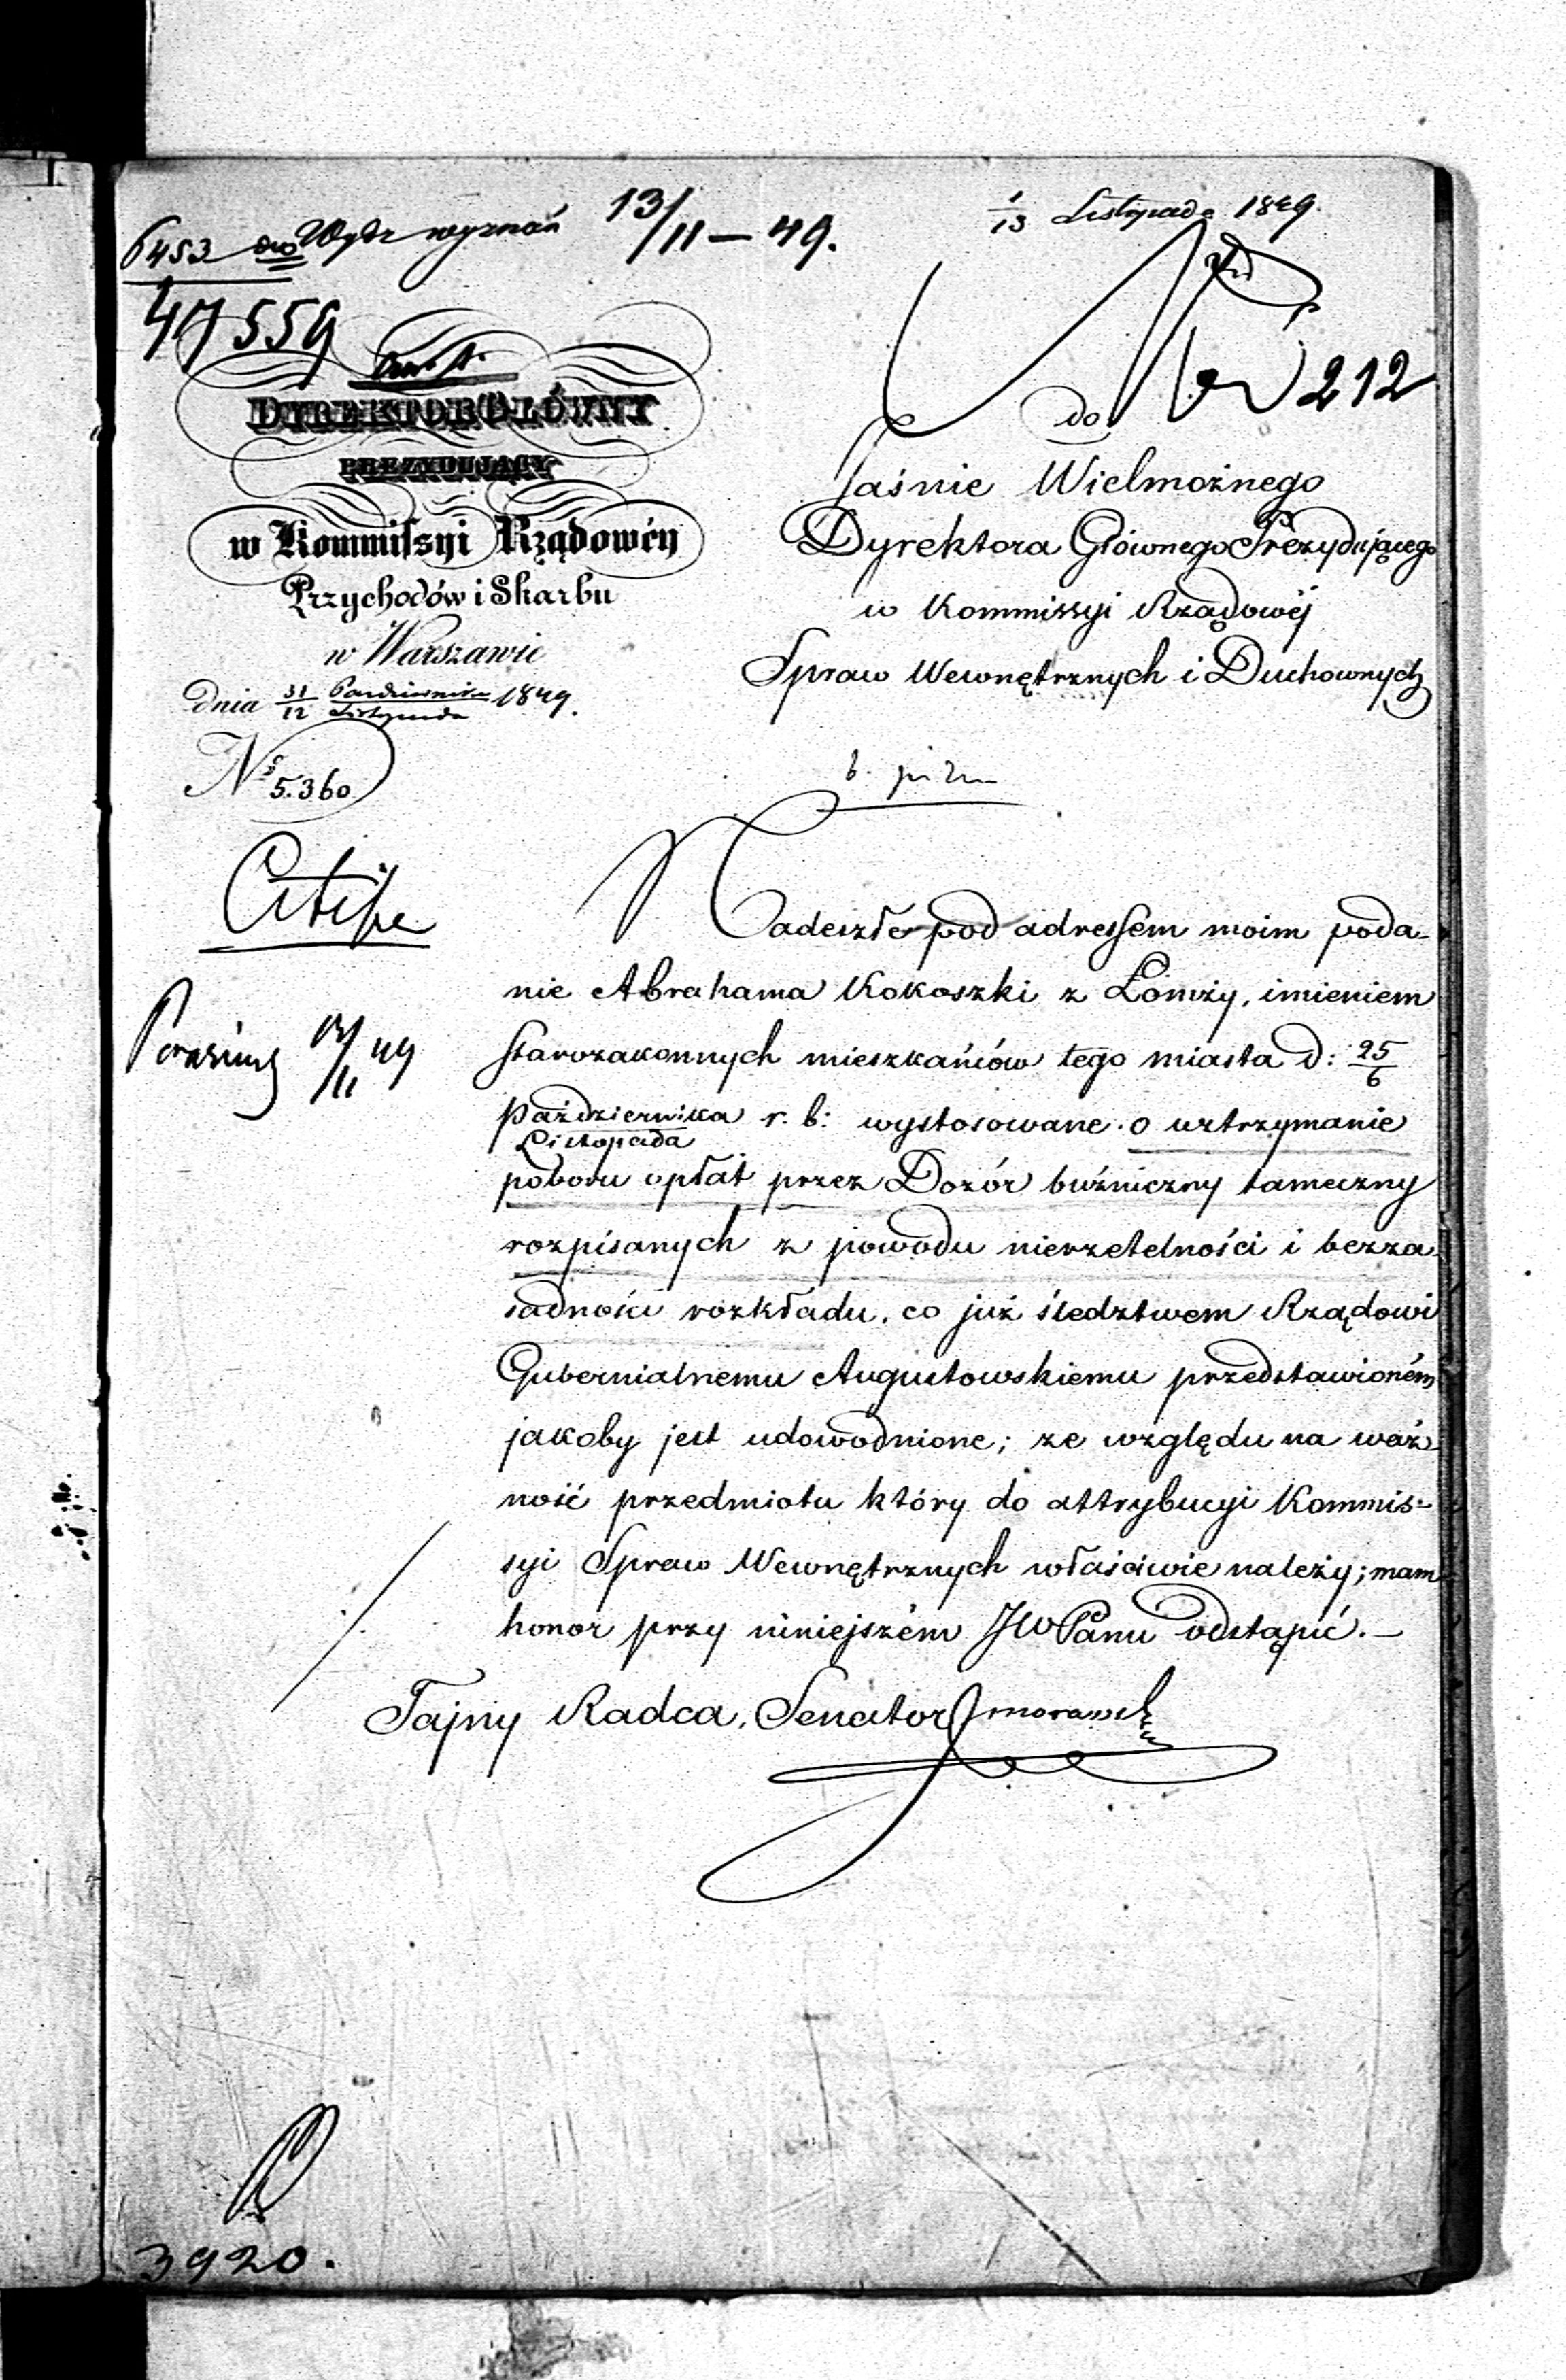 6453 Wydz wyznań 13/11 – 49.
1/13 Listopada 1849.
47559
212
DYREKTOR GŁÓWNY
PREZYDUJĄCY
w Kommissyi Rządowéy
Przychodów i Skarbu
w Warszawie
dnia 31/12 Października/Listopada 1849.
№ 5.360
do
Jaśnie Wielmożnego
Dyrektora Głównego Prezydującego
w Kommissyi Rządowéj
Spraw Wewnętrznych i Duchownych
Nadeszłe pod adressem moim poda-
nie Abrahama Kokoszki z Łomży, imieniem
starozakonnych mieszkańców tego miasta d: 25/6
Października/Listopada r. b: wystosowane o wstrzymanie
poboru opłat przez Dozór bużniczny tameczny
rozpisanych z powodu nierzetelności i bezza-
sadności rozkładu, co już śledztwem Rządowi
Gubernialnemu Augustowskiemu przedstawioném
jakoby jest udowodnione; ze względu na waż-
ność przedmiotu który do attrybucyi Kommis-
syi Spraw Wewnętrznych właściwie należy; mam
honor przy niniejszém JW Panu odstąpić.–
13/11 49
Tajny Radca, Senator Morawski
3920.